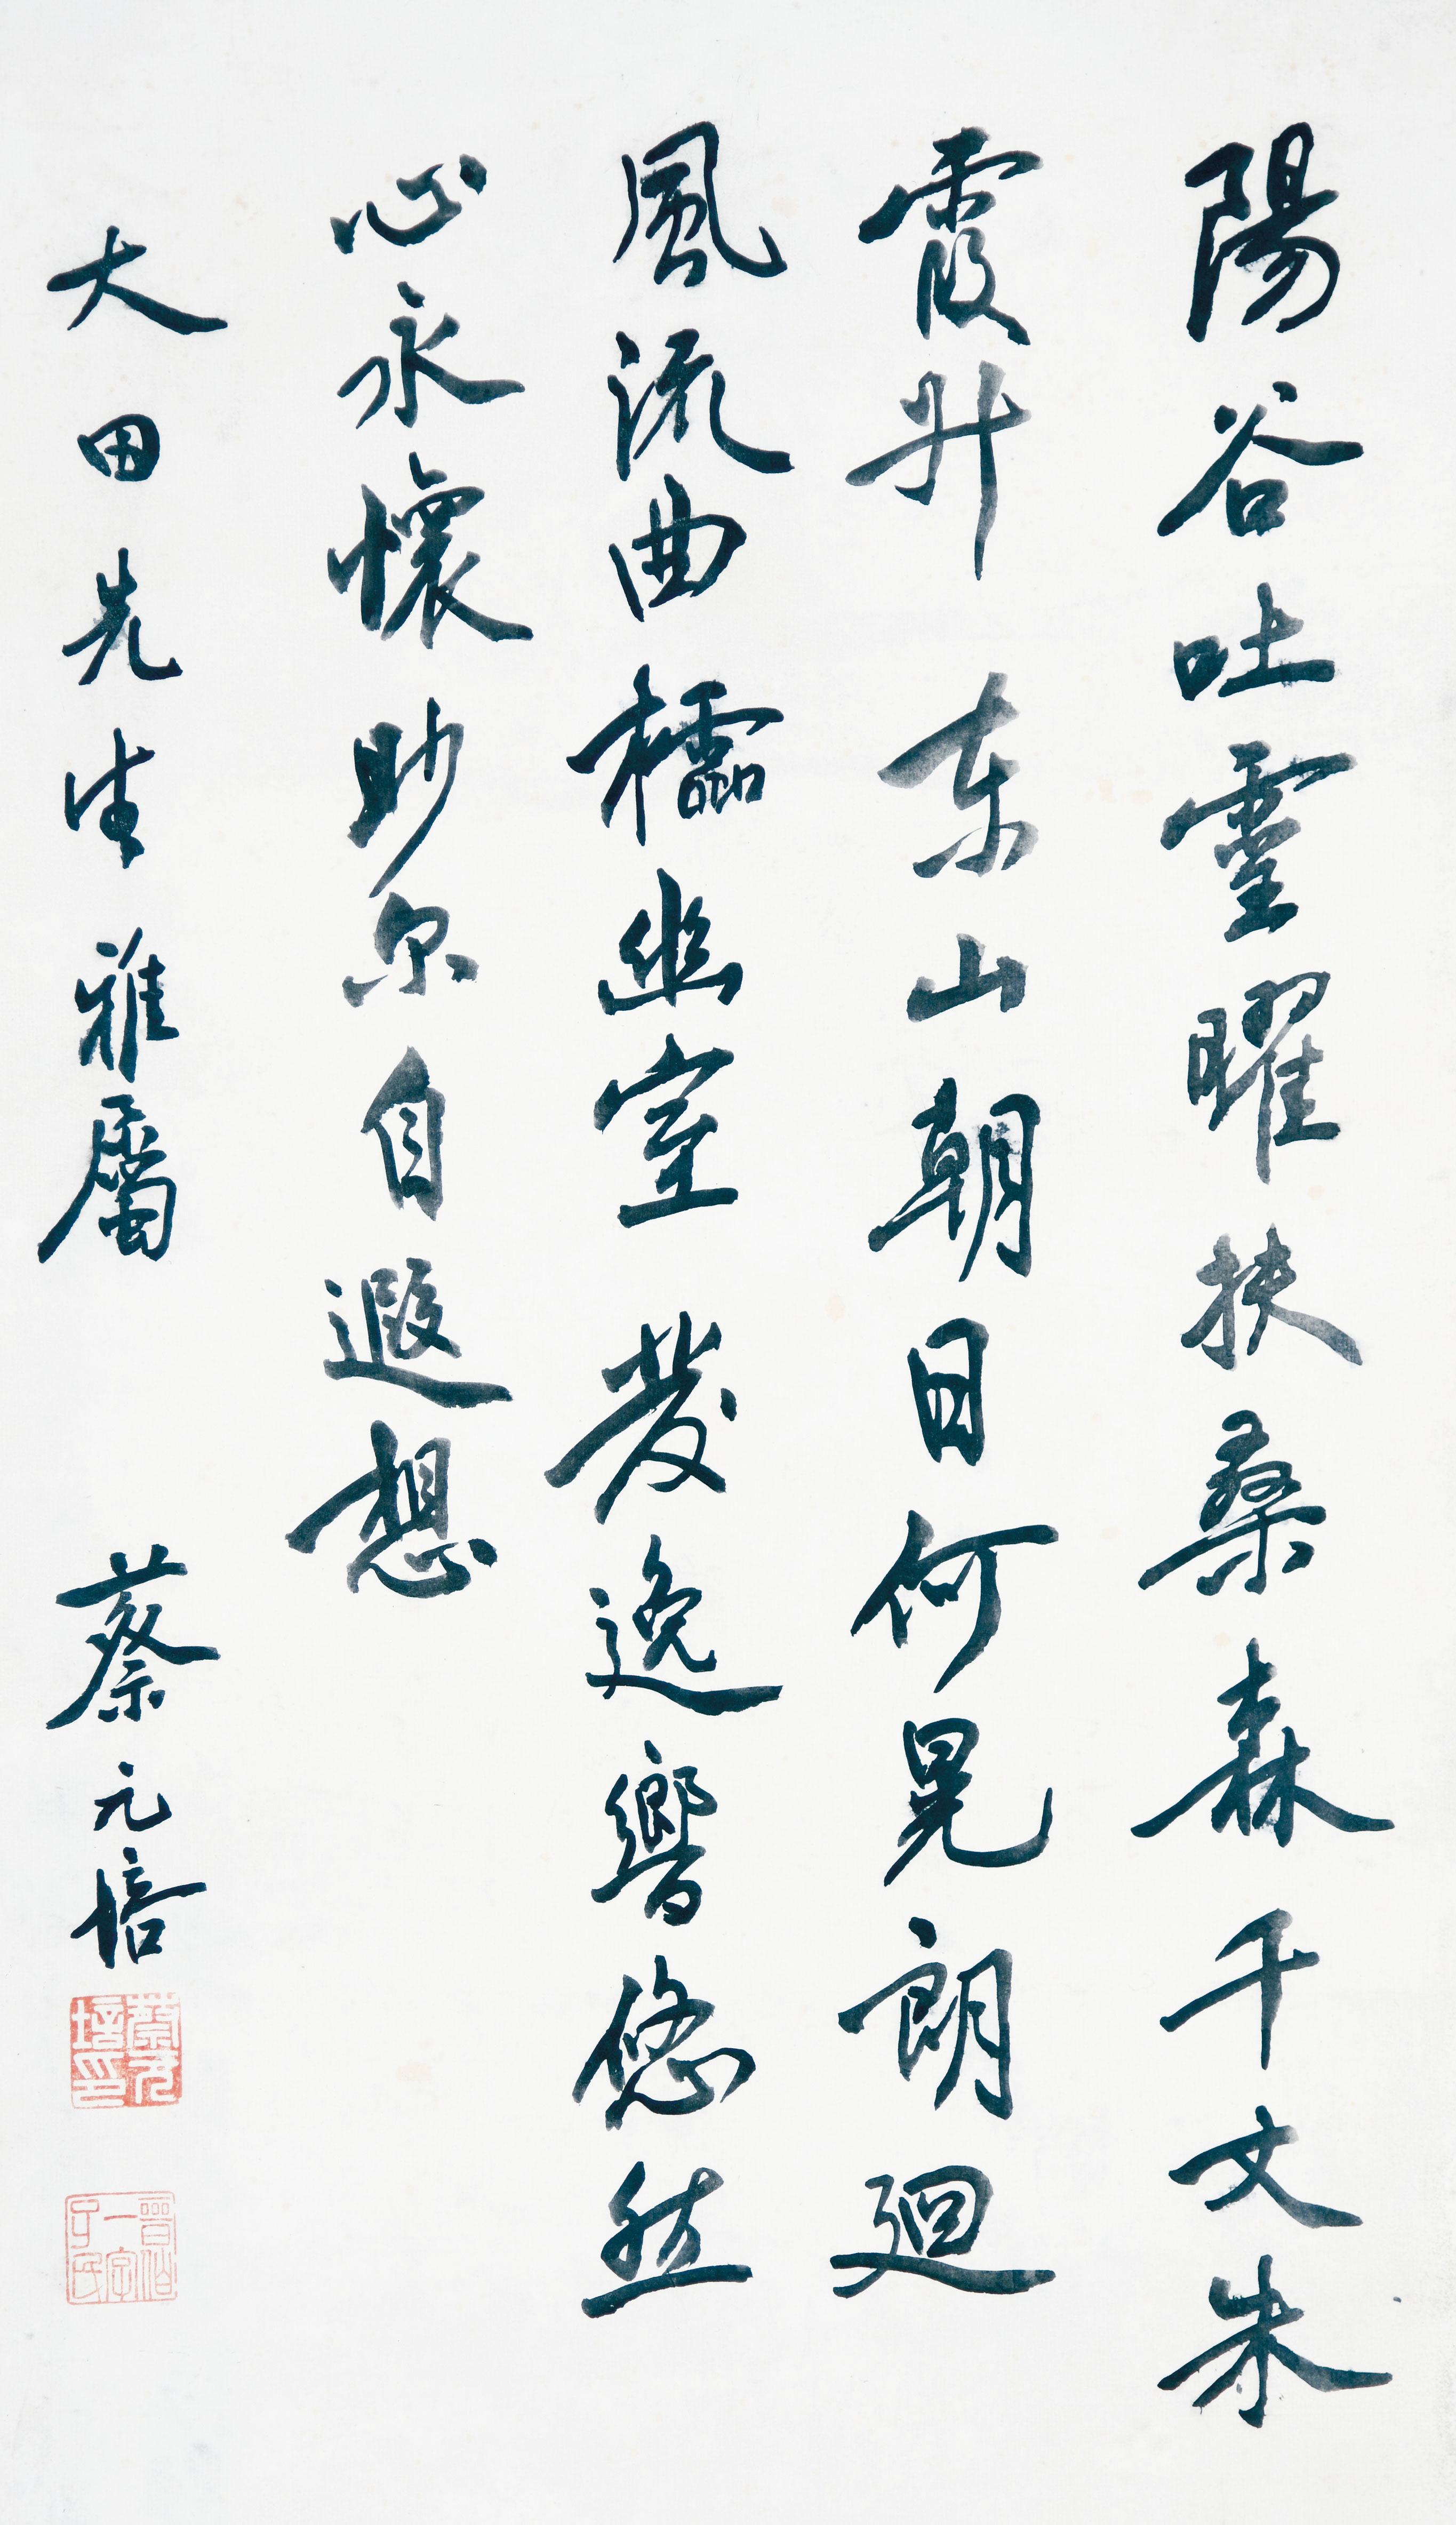 陽谷吐靈曜扶桑森千丈朱
霞升東山朝日何晃朗廻
風流曲櫺幽室發逸響悠然
心永懷眇尔自遐想
大田先生雅屬
蔡元培
蔡元培印
一字子民